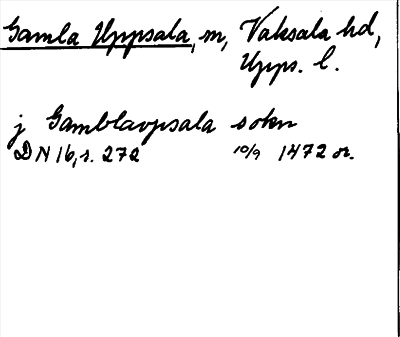 Gamla Uppsala, sn, Vaksala hd,
Upps. l.
j Gamblavpsala sokn
DN 16, s. 272 10/9 1472 or.